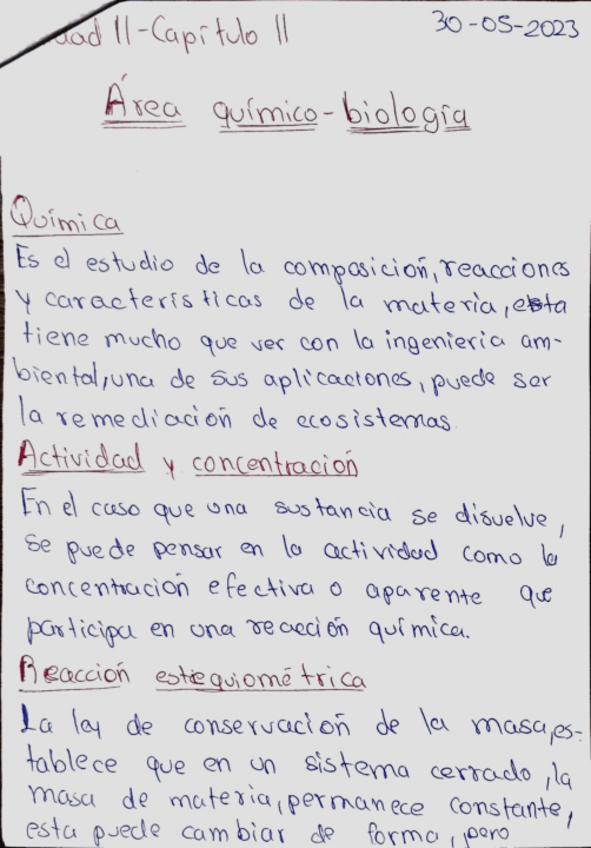 dad II-Capítulo II
30-05-2023
Área químico-biología
Química
Es el estudio de la composición, reacciones
y características de la materia, esta
tiene mucho que ver con la ingenieria am-
biental, una de sus aplicaciones, puede ser
la remediación de ecosistemas.
Actividad y concentración
En el caso que una sustancia se disuelve,
se puede pensar en la actividad como la
concentración efectiva o aparente que
participa en una reacción química.
Reacción estequiométrica
La ley de conservación de la masa, es-
tablece que en un sistema cerrado, la
masa de materia, permanece constante,
esta puede cambiar de forma, pero